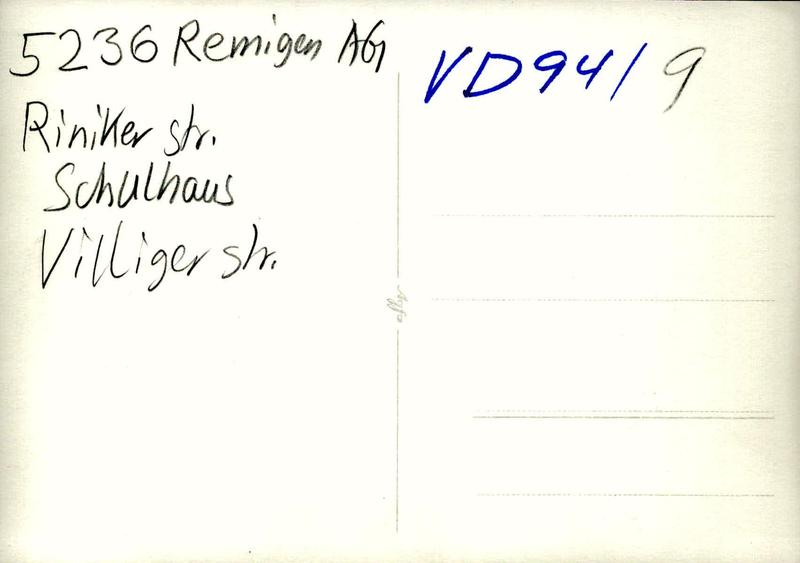 5236 Remigen AG
Riniker str.
Schulhaus
Villiger str.
VD94/9